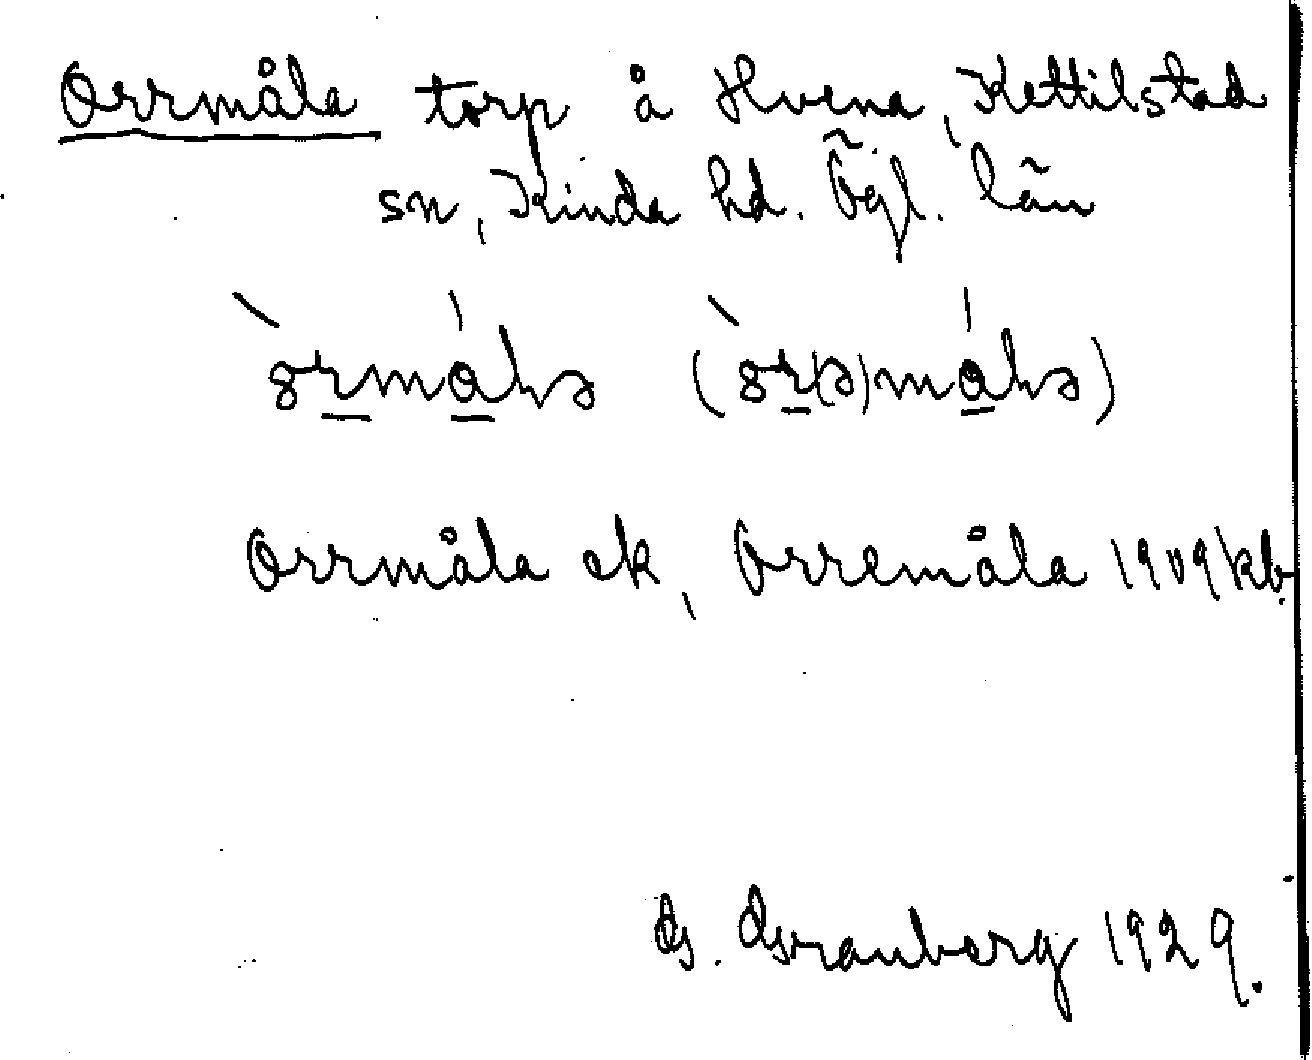 Orrmåla torp å Hvena, Kettilstad
sn, Kinda hd. Ögl. län
Orrmåla ek, Orremåla 1909 kb.
G. Granberg 1929.